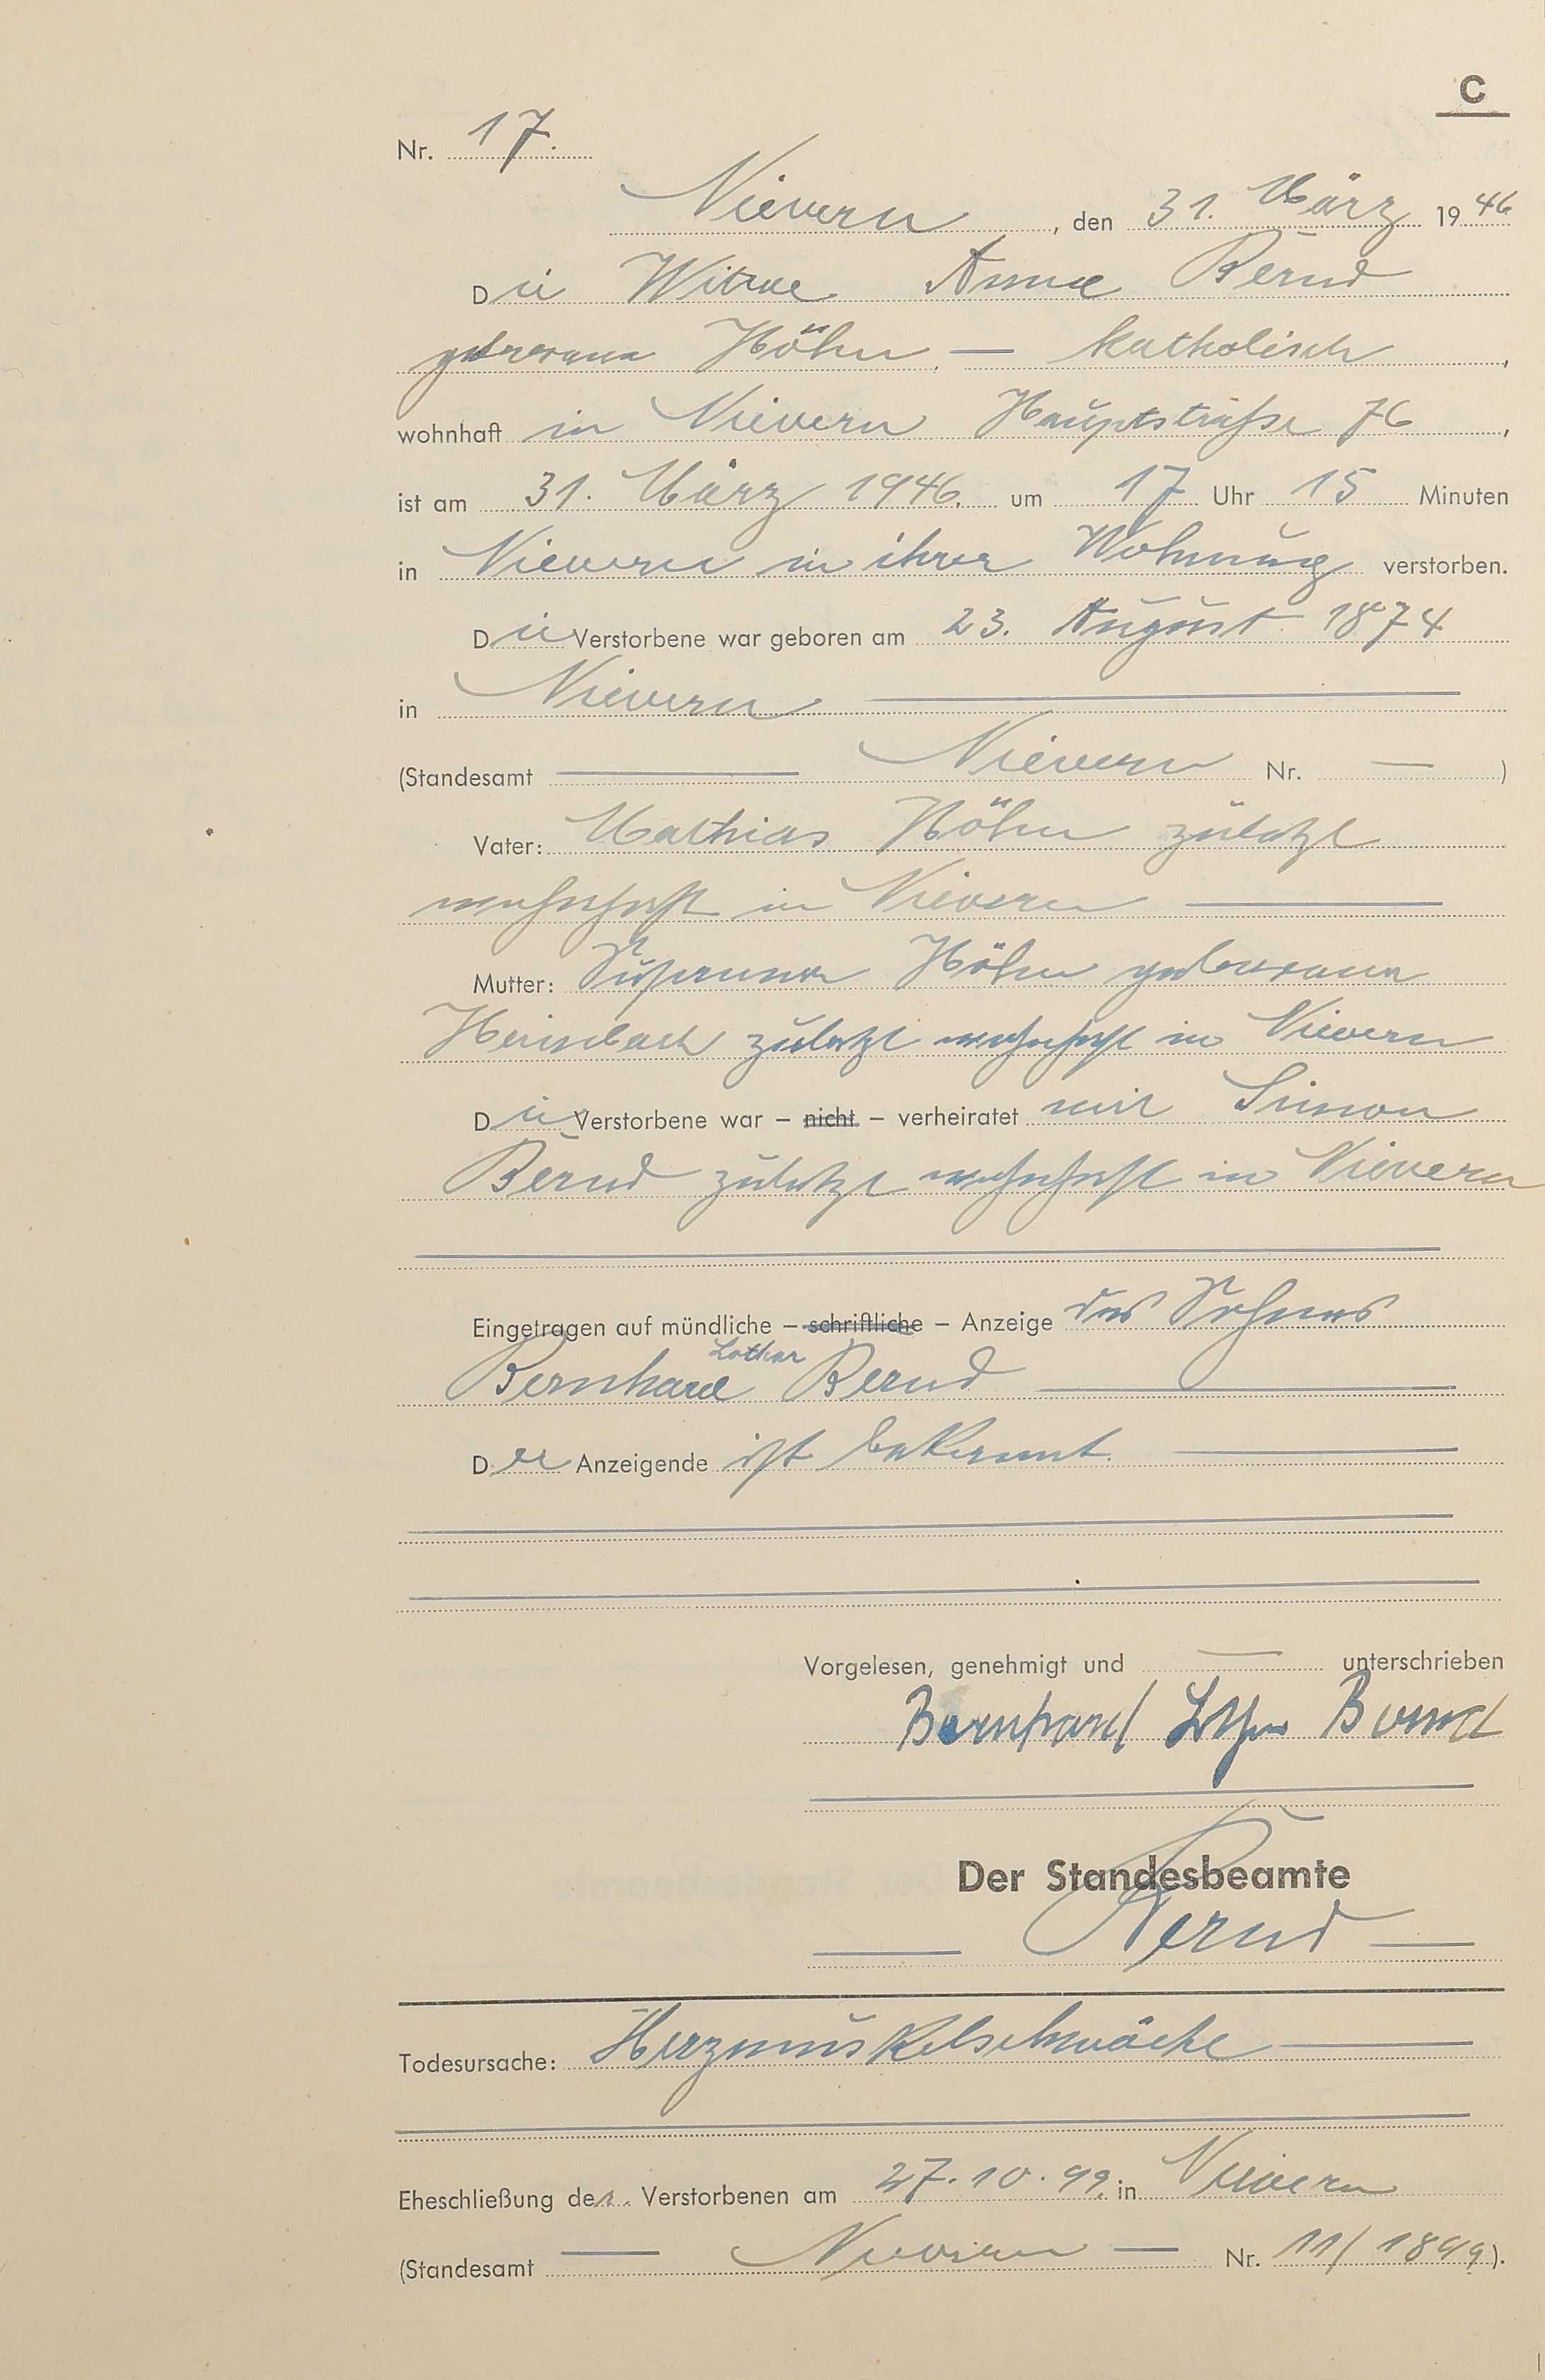 C
Nr. 17.
Nievern, den 31. März 1946
Die Witwe Anna Bernd
geborene Höhn. — katholisch,
wohnhaft in Nievern Hauptstraße 76,
ist am 31. März 1946. um 17 Uhr 15 Minuten
in Nievern in ihrer Wohnung verstorben.
Die Verstorbene war geboren am 23. August 1874
in Nievern
(Standesamt — Nievern Nr. — )
Vater: Mathias Höhn zuletzt
wohnhaft in Nievern —
Mutter: Susanna Höhn geborene
Heimbach zuletzt wohnhaft in Nievern
Die Verstorbene war – nicht – verheiratet mit Simon
Bernd zuletzt wohnhaft in Nievern
Eingetragen auf mündliche – schriftliche – Anzeige des Sohnes
Bernhard Lothar Bernd —
Der Anzeigende ist bekannt. —
Vorgelesen, genehmigt und — unterschrieben
Bernhard Lothar Bernd
Der Standesbeamte
— Bernd —
Todesursache: Herzmuskelschwäche —
Eheschließung der Verstorbenen am 27.10.99. in Nievern
(Standesamt — Nievern — Nr. 11/1899).